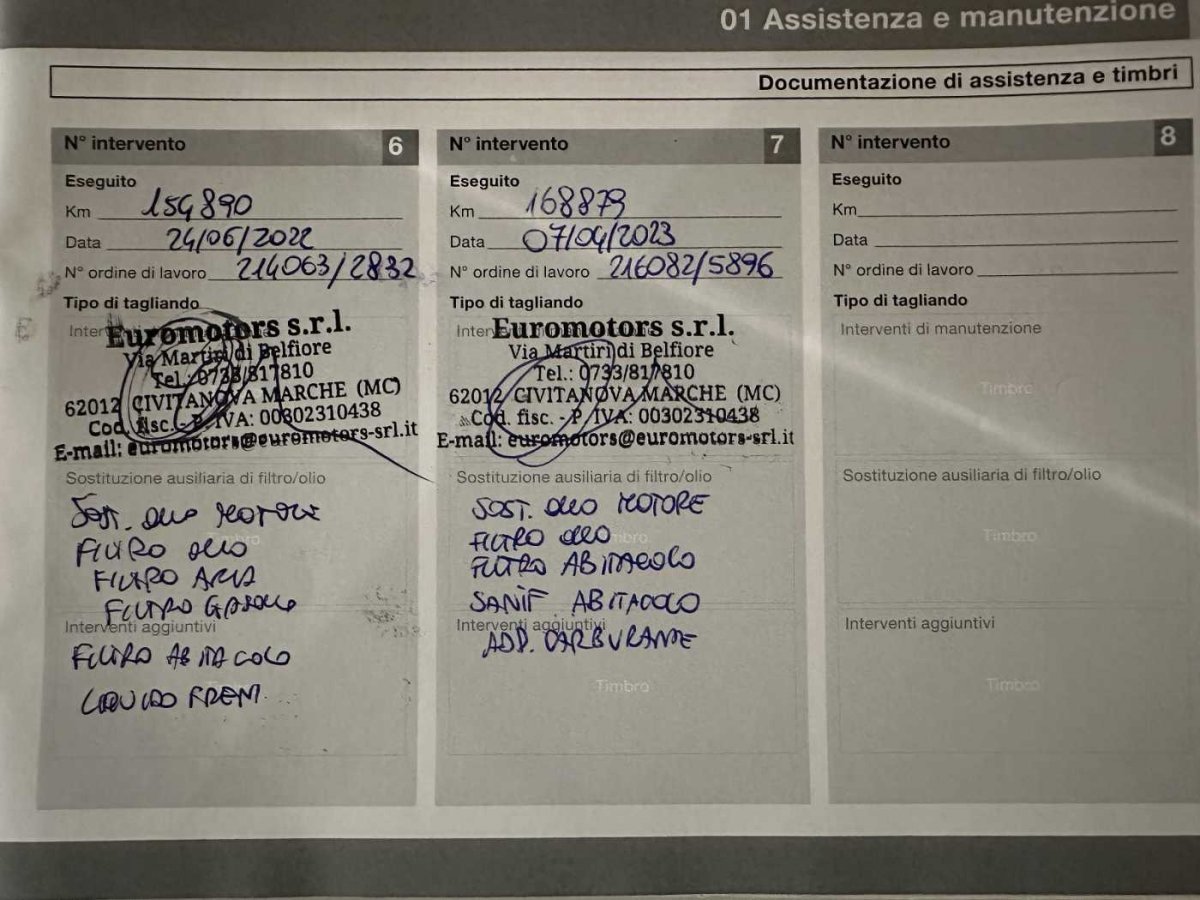 01 Assistenza e manutenzione
Documentazione di assistenza e timbri
N° intervento 6
Eseguito
Km 154890
Data 24/06/2022
N° ordine di lavoro 214063/2832
Tipo di tagliando
Euromotors s.r.l.
Via Martiri di Belfiore
Tel.: 0733/817810
62012 CIVITANOVA MARCHE (MC)
Cod. fisc. - P. IVA: 00302310438
E-mail: euromotors@euromotors-srl.it
Sostituzione ausiliaria di filtro/olio
SOST. OLIO MOTORE
FILTRO OLIO
FILTRO ARIA
FILTRO GASOLIO
Interventi aggiuntivi
FILTRO ABITACOLO
LIQUIDO FRENI
N° intervento 7
Eseguito
Km 168879
Data 07/04/2023
N° ordine di lavoro 216082/5896
Tipo di tagliando
Euromotors s.r.l.
Via Martiri di Belfiore
Tel.: 0733/817810
62012 CIVITANOVA MARCHE (MC)
Cod. fisc. - P. IVA: 00302310438
E-mail: euromotors@euromotors-srl.it
Sostituzione ausiliaria di filtro/olio
SOST. OLIO MOTORE
FILTRO OLIO
FILTRO ABITACOLO
SANIF ABITACOLO
Interventi aggiuntivi
ADD. CARBURANTE
Timbro
N° intervento 8
Eseguito
Km
Data
N° ordine di lavoro
Tipo di tagliando
Interventi di manutenzione
Timbro
Sostituzione ausiliaria di filtro/olio
Timbro
Interventi aggiuntivi
Timbro